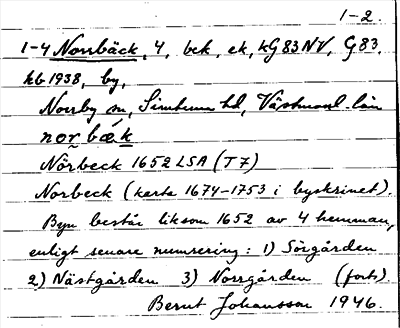 1-2.
1-4 Norrbäck, 4, bek, ek, kG 83 NV, G 83.
hb 1938, by,
Norrby sn, Simtuna hd, Västmanl. län
nor bæk
Nörbeck 1652 LSA (T7)
Norbeck (karta 1674-1753 i byskrinet).
Byn består liksom 1652 av 4 hemman,
enligt senare numrering: 1) Sörgården
2) Nästgården 3) Norrgården (forts).
Bernt Johansson 1946.